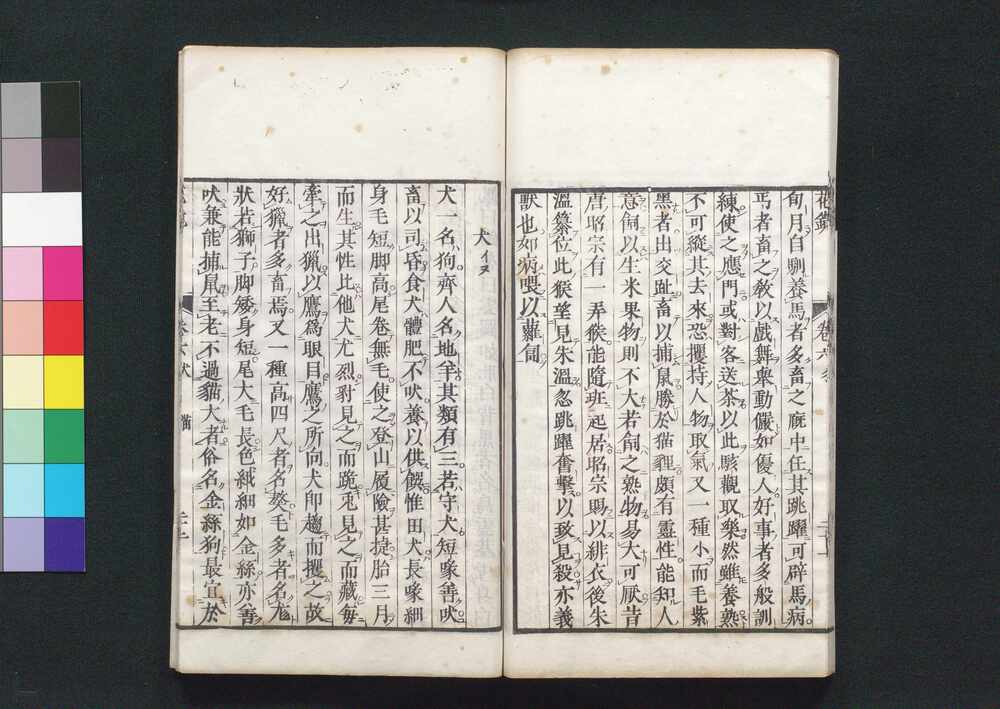 旬月自馴養馬者多畜之廐中任其跳躍可辟馬病
丐者畜之教以戲舞舉動儼如優人好事者多般訓
練使之應門或對客送茶以此駭觀取樂然雖養熟
不可縱其去來恐攫持人物取氣又一種小而毛紫
黑者出交趾畜以捕鼠勝於猫貍頗有靈性能知人
意飼以生米果物則不大若飼之熟物易大可厭昔
唐昭宗有一弄猴能隨班起居昭宗賜以緋衣後朱
溫簒位此猴望見朱溫忽跳躍奮擊以致見殺亦義
獸也如病喂以蘿蔔
犬イヌ
犬一名狗齊人名地羊其類有三若守犬短喙善吠
畜以司昏食犬體肥不吠養以供饌惟田犬長喙細
身毛短脚高尾卷無毛使之登山履險甚捷胎三月
而生其性比他犬尤烈豺見之而跪兎見之而藏毎
牽之出獵以鷹爲眼目鷹之所向犬即趨而攫之故
好獵者多畜焉又一種高四尺者名獒毛多者名尨
狀若獅子脚矮身短尾大毛長色絨細如金絲亦善
吠兼能捕鼠至老不過貓大者俗名金絲狗最宜於